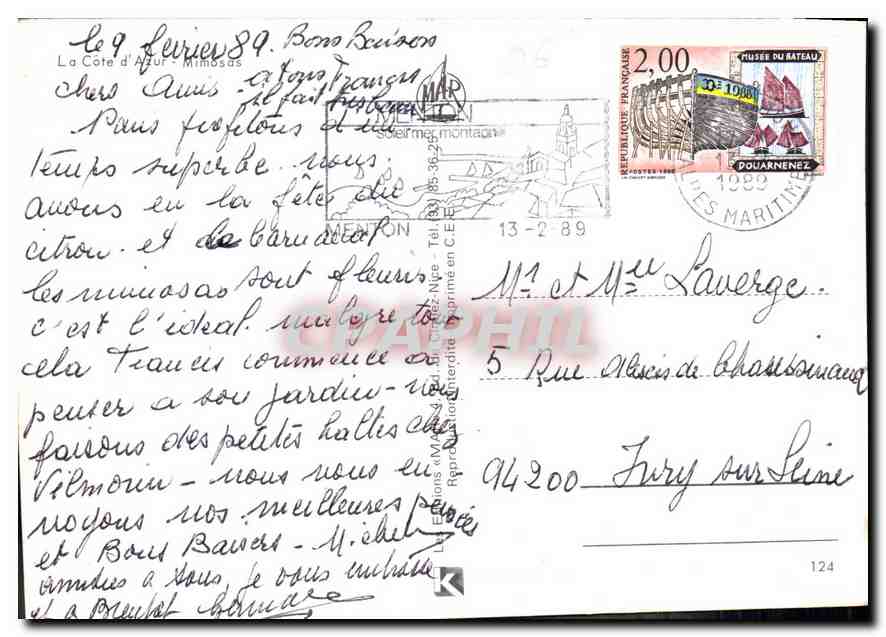 le 9 fevrier 89. Bons Baisers
a tous Francois
La Côte d'Azur - Mimosas
chers Amis
il fait tres beau
Nous profitons d'un
temps superbe nous
avons eu la fête du
citron et le carnaval
les mimosas sont fleuris
c'est l'ideal malgre tout
cela Francis commence a
penser a son jardin - nous
faisons des petites haltes chez
Vilmorin - nous vous en-
voyons nos meilleures pensées
et Bons Baisers - Michel
amities a tous, je vous embrasse
et a Bientot
MAR
MENTON
Soleil mer montagne
MENTON
13-2-89
Les Editions «MAR»
Nice - Tél. (93)
Reproduction interdite - Imprimé en C.E.E.
K
REPUBLIQUE FRANÇAISE
2,00
MUSÉE DU BATEAU
DOUARNENEZ
POSTES 1988
1989
ALPES MARITIMES
Mr et Mme Laverge.
5 Rue Alexis de Chassinacq
94200 Ivry sur Seine
124
CPAPHIL